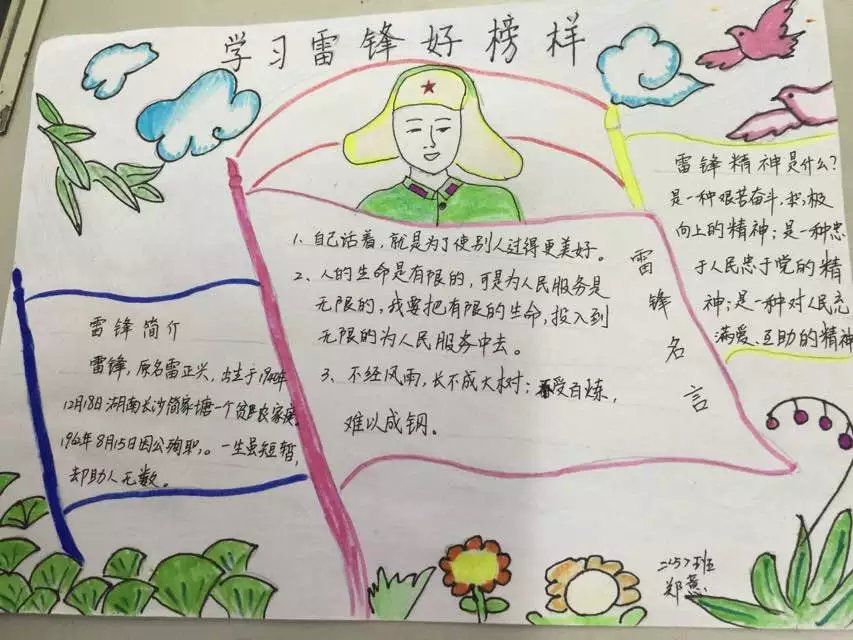 学习雷锋好榜样
雷锋简介
雷锋,原名雷正兴,出生于1940年
12月18日湖南长沙简家塘一个贫农家庭
1962年8月15日因公殉职,。一生虽短暂,
却助人无数。
1、自己活着,就是为了使别人过得更美好。
2、人的生命是有限的,可是为人民服务是
无限的,我要把有限的生命,投入到
无限的为人民服务中去。
3、不经风雨,长不成大树;受百炼,
难以成钢。
雷锋名言
雷锋精神是什么?
是一种艰苦奋斗,积极
向上的精神;是一种忠
于人民忠于党的精
神;是一种对人民充
满爱、互助的精神
班
郑慧